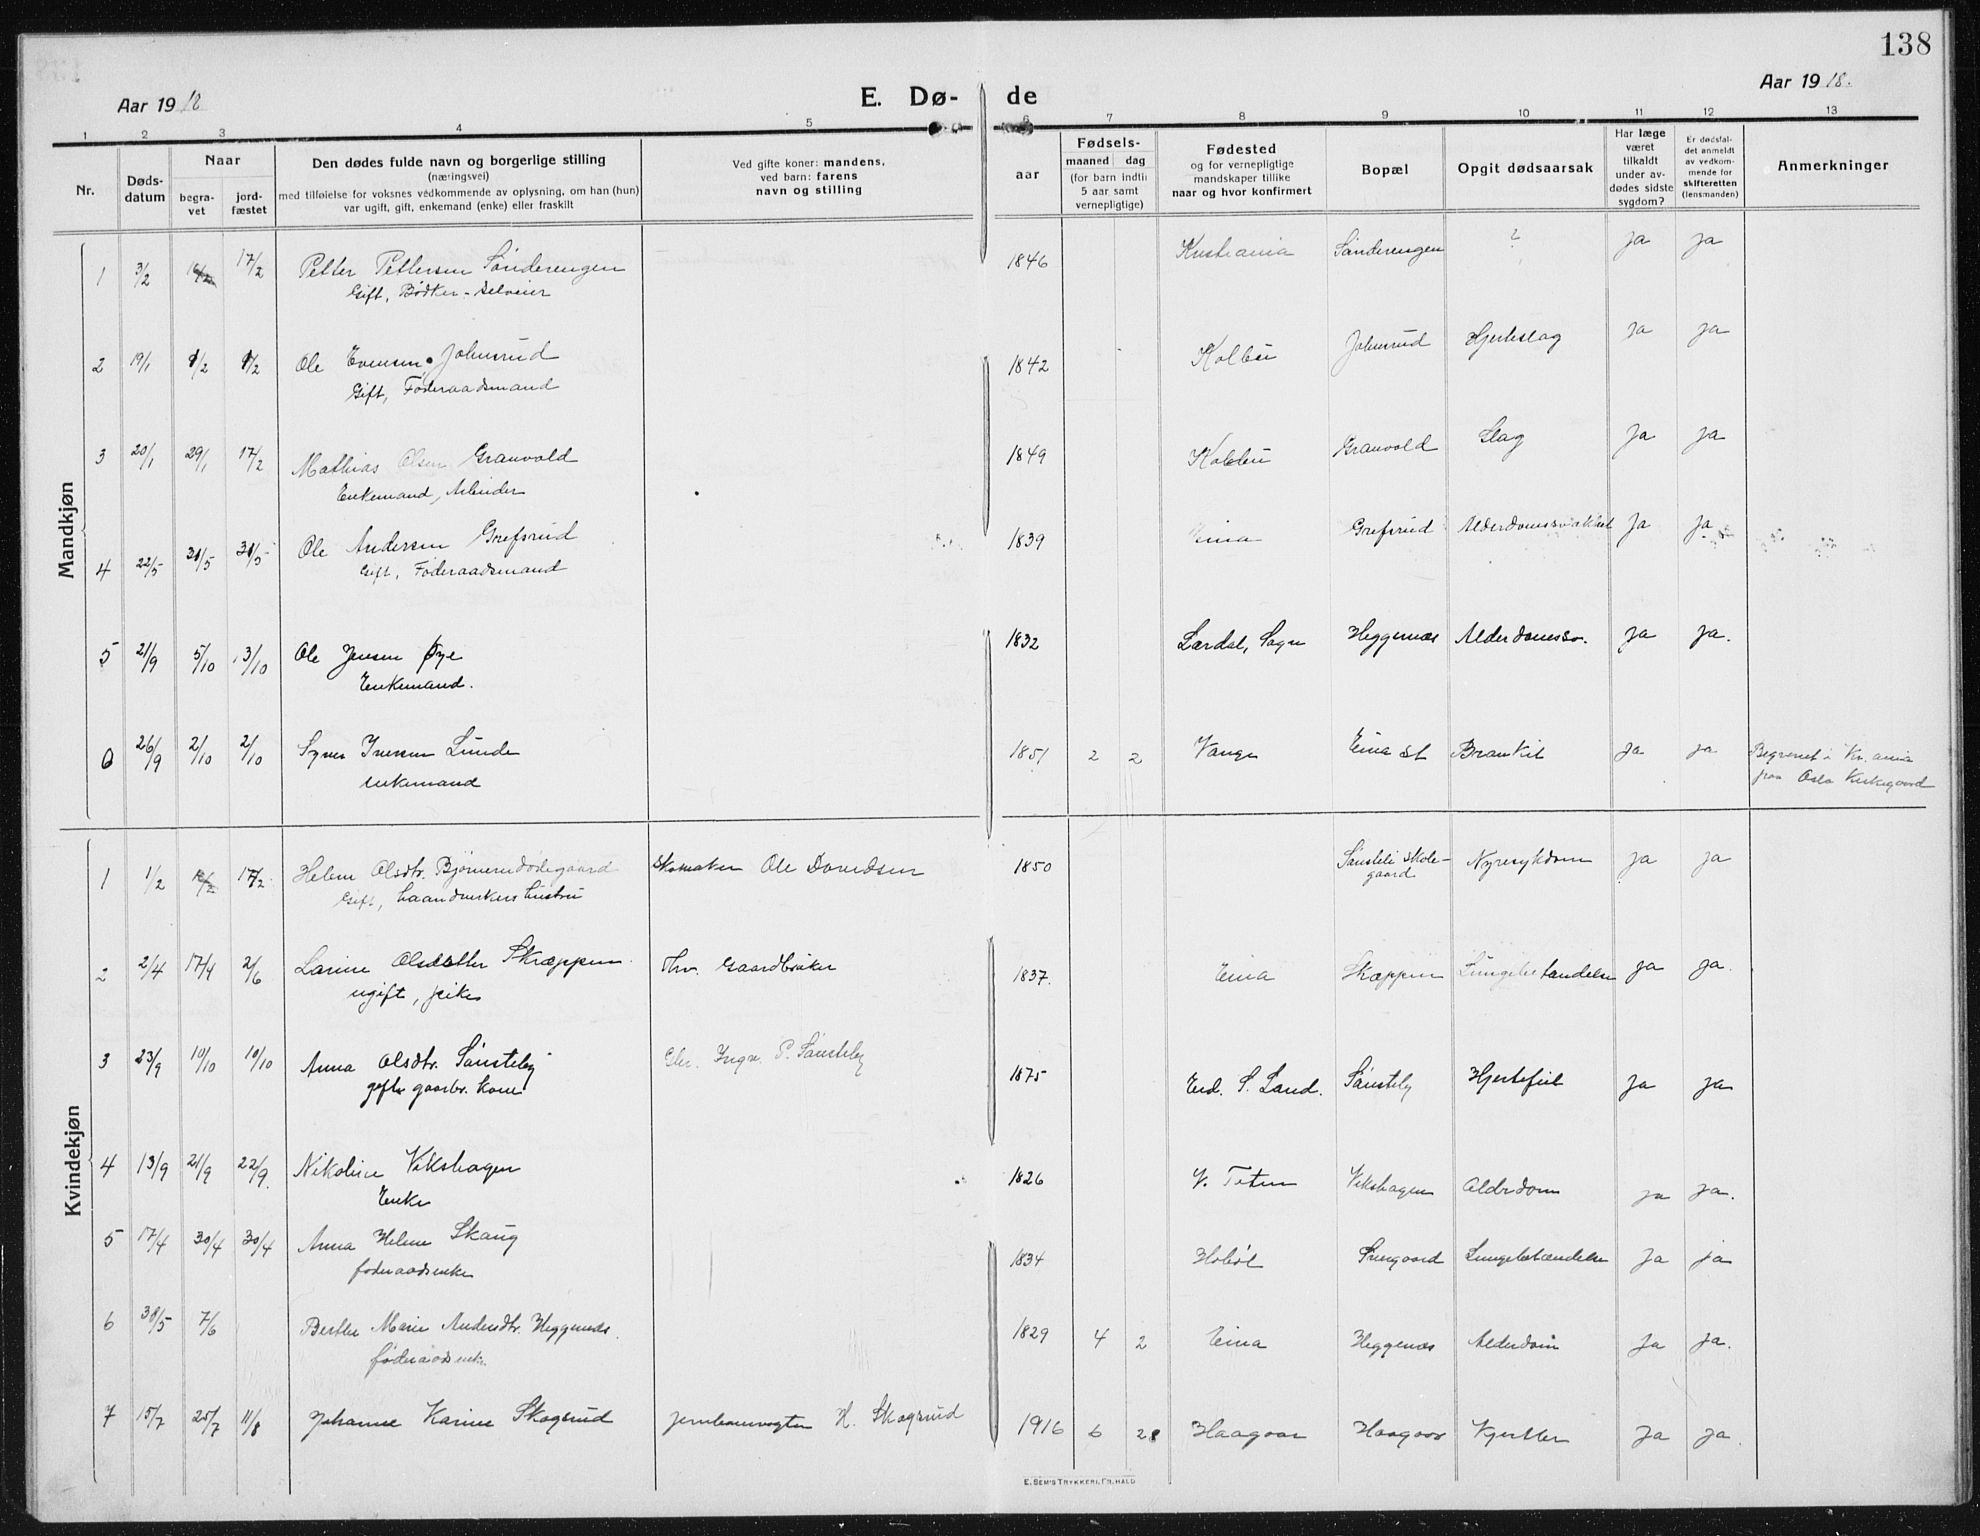 138
Aar 1918
E. Dø- de
Aar 1918.
1 2 3 4 5 6 7 8 9 10 11 12 13
Nr.
Døds-
datum
Naar
begra-
vet
jord-
fæstet
Den dødes fulde navn og borgerlige stilling
(næringsvei)
med tilføielse for voksnes vedkommende av oplysning, om han (hun)
var ugift, gift, enkemand (enke) eller fraskilt
Ved gifte koner: mandens,
ved barn: farens
navn og stilling
Fødsels-
aar
maaned dag
(for barn indtil
5 aar samt
vernepligtige)
Fødested
og for vernepligtige
mandskaper tillike
naar og hvor konfirmert
Bopæl
Opgit dødsaarsak
Har læge
været
tilkaldt
under av-
dødes sidste
sygdom?
Er dødsfal-
det anmeldt
av vedkom-
mende for
skifteretten
(lensmanden)
Anmerkninger
Mandkjøn
1 3/2 17/2 Petter Pettersen Sönderengen 1846 Kristiania Sönderengen ? ja ja
Gift, Bödker - Selveier
2 19/1 8/2 8/2 Ole Evensen Johnsrud 1842 Kolbu Johnsrud Hjerteslag ja ja
Gift, Föderaadsmand
3 20/1 29/1 17/2 Mathias Olsen Granvold 1849 Kolbu Granvold Slag ja ja
Enkemand, Arbeider
4 22/5 31/5 31/5 Ole Andersen Grefsrud 1839 Eina Grefsrud Alderdomssvakhet ja ja
Gift, Föderaadsmand
5 21/9 5/10 13/10 Ole Jensen Øye 1832 Lærdal, Sogn Heggenæs Alderdomssv. ja ja.
Enkemand.
6 26/9 2/10 2/10 Syver Iversen Lunde 1851 2 2 Vang Eina st Bronkit ja ja Begravet i Kr.ania
enkemand paa Oslo Kirkegaard
Kvindekjøn
1 1/2 17/2 Helene Olsdtr. Björnerudödegaard Skomaker Ole Davidsen 1850 Sönsteli skole- Nyresykdom ja ja
Gift, haandverkers hustru gaard
2 2/4 17/4 2/6 Larine Olsdatter Skræppen Fhv. Gaardbruker 1837. Eina Skræppen Lungebetændelse ja ja.
ugift, pike
3 23/9 10/10 10/10 Anna Olsdtr. Sönsteby Gbr. Ingv. P. Sönsteby 1875 End. S. Land. Sönsteby Hjertefeil ja ja
gift gaardbr. kone
4 13/9 21/9 22/9. Nikoline Vikshagen 1826 V. Toten Vikshagen Alderdom ja ja.
Enke
5 17/4 30/4 30/4 Anna Helene Skaug 1834 Hobøl Lungebetændelse ja ja
föderaadsenke
6 30/5 7/6 Berthe Marie Andersdtr. Heggenæs. 1829 4 2 Eina Heggenæs Alderdom ja ja.
föderaadsenke.
7 15/7 25/7 11/8 Johanne Karine Skogsrud Jernbanevogter H. Skogsrud 1916 6 28 Haagaar Haagaar Kjertler ja ja.
E. SEM'S TRYKKERI, FR.HALD